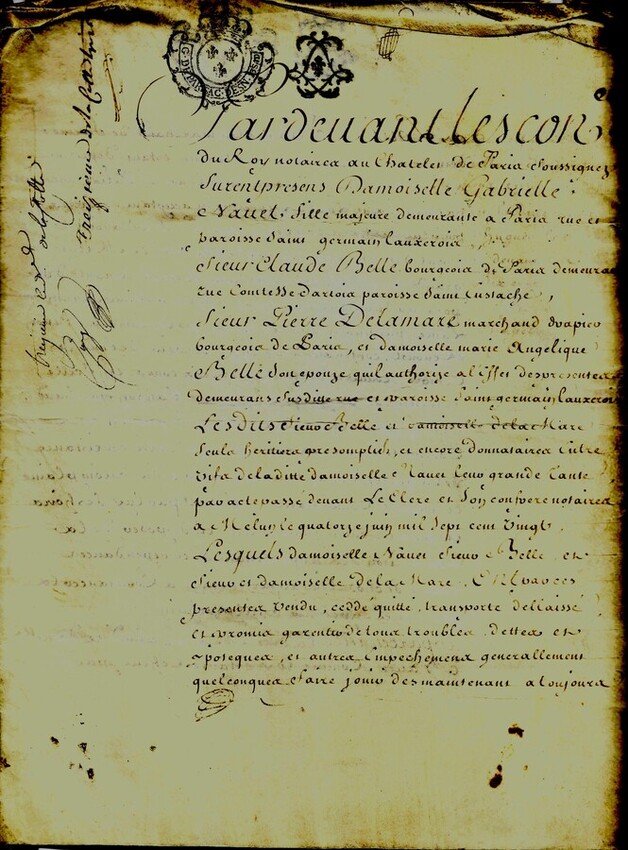 Pardevant les con
du Roy notaires au Chatelet de Paris soussignez
furent presens Damoiselle Gabrielle
Navet fille majeure demeurante a Paris rue et
paroisse saint germain lauxerois
Sieur Claude Belle bourgeois de Paris demeurant
rue Comtesse dartois paroisse saint Eustache,
Sieur Pierre Delamare marchand drapier
bourgeois de Paris, et damoiselle marie Angelique
Belle son epouze quil authorize a leffet des presentes
demeurans susditte rue et paroisse saint germain lauxerois
Lesdits sieur Belle et damoiselle de la Mare
seuls heritiers presomptifs, et encore donnataires entre
vifs de la ditte damoiselle Navet leur grande tante
par acte passé devant Le Clerc et son confrere notaires
a Melun le quatorze juin mil sept cent vingt
Lesquels damoiselle Navet sieur Belle et
sieur et damoiselle de la Mare ont par ces
presentes vendu, ceddé quitté, transporté dellaissé
et promis garentir de tous troubles, dettes et
ypoteques, et autres empechemens generallement
quelconques et faire jouir des maintenant a toujours